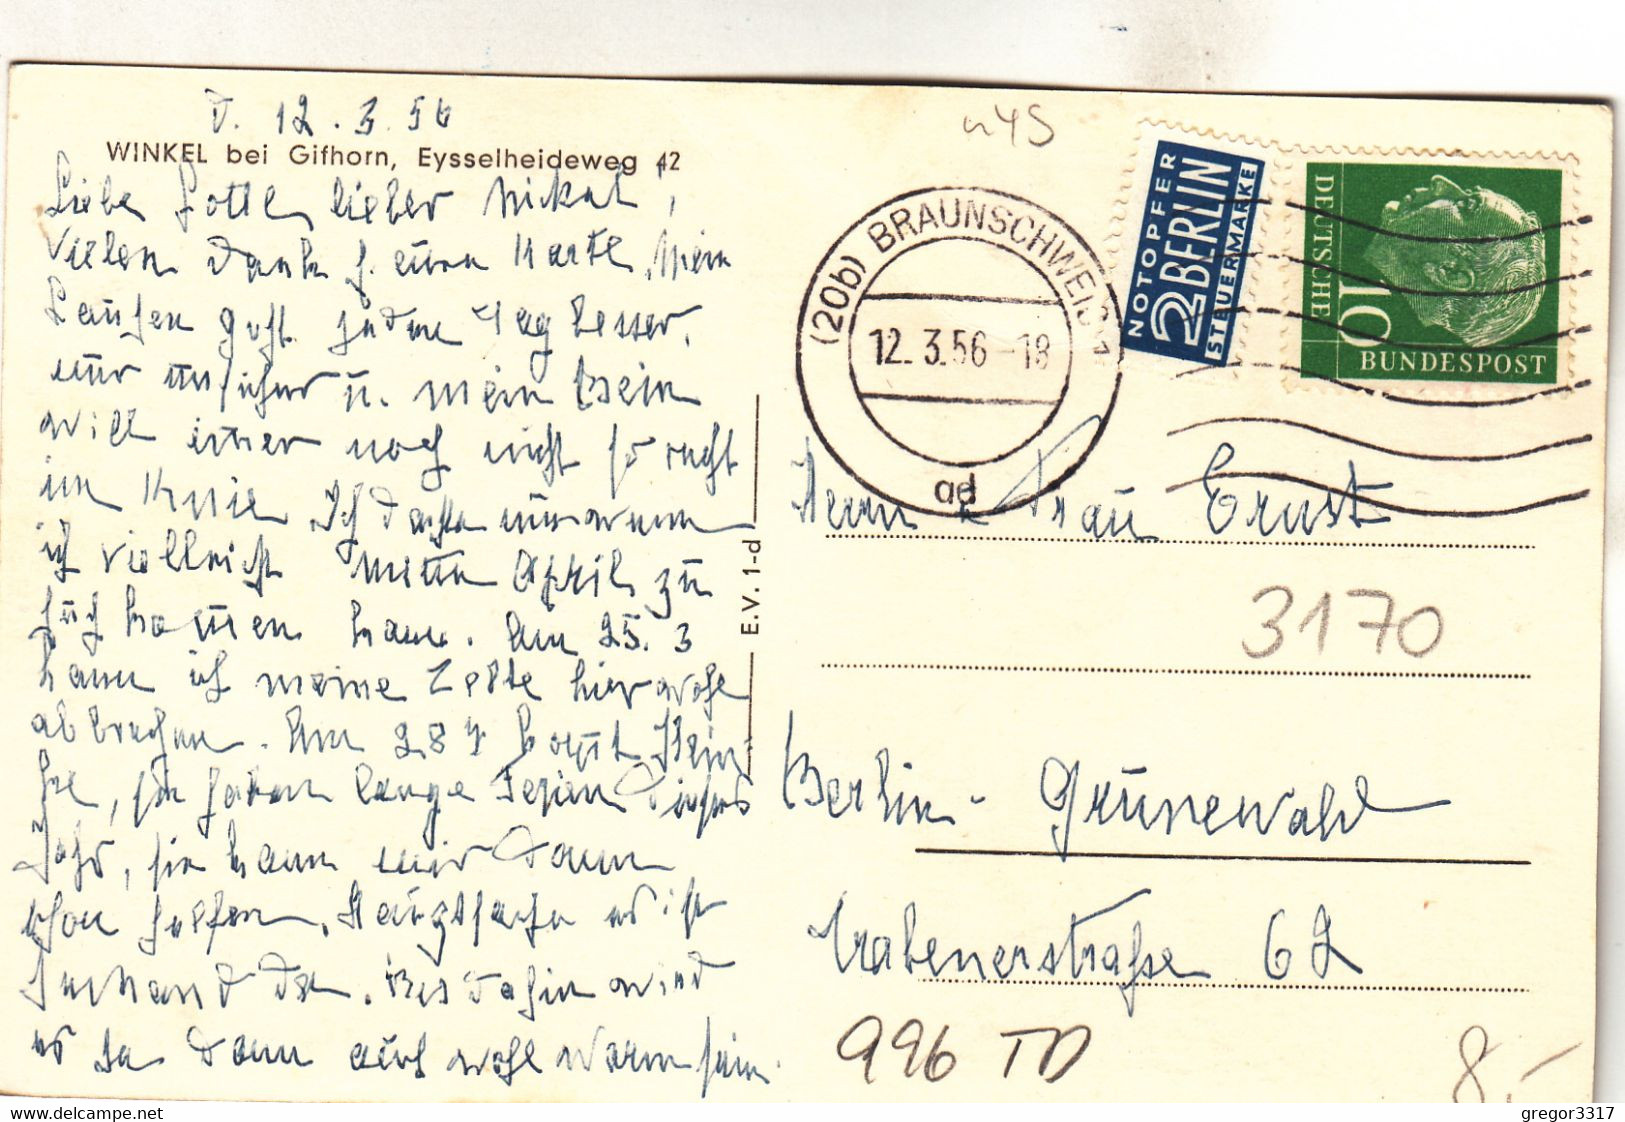 d. 12.3.56
WINKEL bei Gifhorn, Eysselheideweg 42
Liebe Lotte, lieber Nickel,
Vielen Dank f. eure Karte. Mein
Laufen geht jeden Tag besser,
nur unsicher u. mein Bein
will immer noch nicht so recht
im Knie. Ich dachte nun warum
ich vielleicht Mitte April zu
Euch kommen kann. Am 25. 3
kann ich meine Zelte hier wohl
abbrechen. Am 28 kommt
, sie haben lange Ferien dieses
Jahr, sie kann mir dann
schon helfen. Hauptsache es ist
Jemand da. Bis dahin wird
es ja dann auch wohl warm sein.
E.V. 1-d
n45
(20b) BRAUNSCHWEIG
12. 3.56-18
ad
NOTOPFER
2 BERLIN
STEUERMARKE
DEUTSCHE
10
BUNDESPOST
Herrn u Frau Ernst
3170
Berlin - Grunewald
Trabenerstraße 62
996 TD
8,-
gregor3317